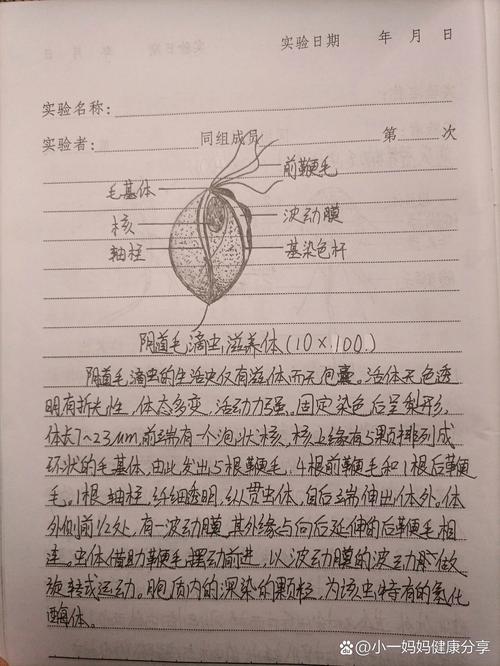 实验日期 年 月 日
实验名称:
实验者: 同组成员 第 次
毛基体
前鞭毛
核
波动膜
轴柱
基染色杆
阴道毛滴虫滋养体(10×100.)
阴道毛滴虫的生活史仅有滋体而无包囊。活体无色透
明有折光性,体态多变,活动力强。固定染色后呈梨形,
体长7~23μm,前端有一个泡状核,核上缘有5颗排列成
环状的毛基体,由此发出5根鞭毛,4根前鞭毛和1根后鞭
毛。1根轴柱,纤细透明,纵贯虫体,自后端伸出体外。体
外侧前1/2处,有一波动膜,其外缘与向后延伸的后鞭毛相
连。虫体借助鞭毛摆动前进,以波动膜的波动
旋转或运动。胞质内的深染的颗粒,为该虫特有的氢化
酶体。
小一妈妈健康分享